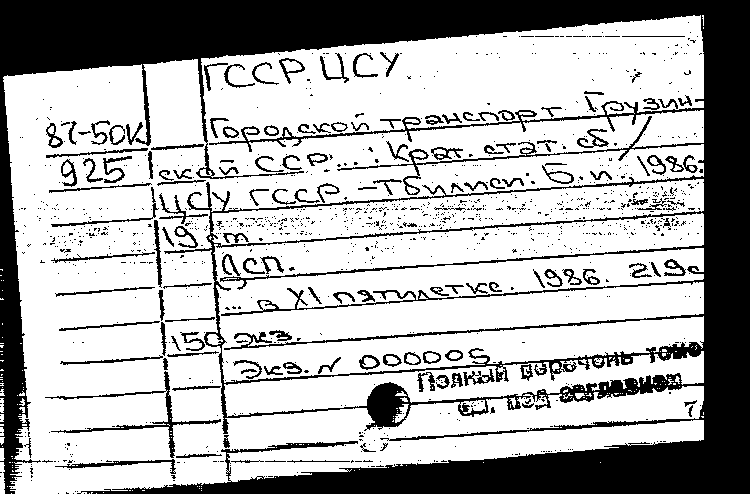 ГССР. ЦСУ
87-50К Городской транспорт Грузин-
925 ской ССР... : Крат. стат. сб. /
ЦСУ ГССР. -Тбилиси: Б.и., 1986.
19 см.
Дсп.
... в XI пятилетке. 1986. 219с
150 экз.
Экз. N 000005
Полный перечень томо
см. под заглавием